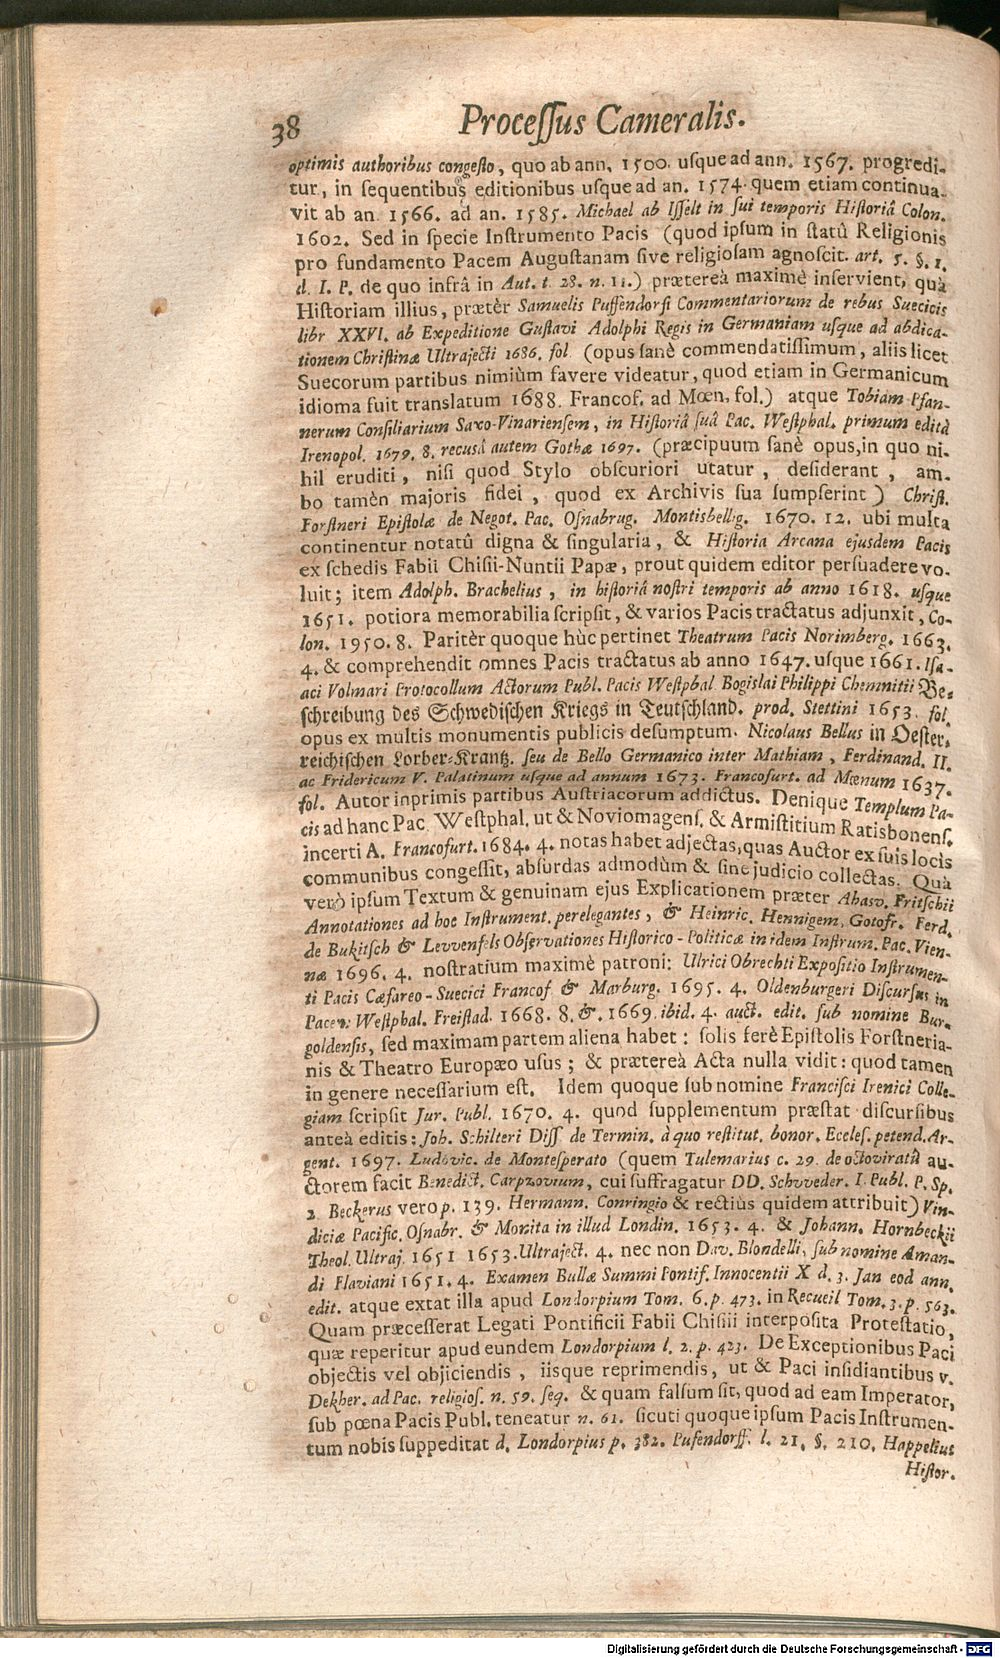 38 Processus Cameralis.
optimis authoribus congesto, quo ab ann. 1500. usque ad ann. 1567. progredi-
tur, in sequentibus editionibus usque ad an. 1574. quem etiam continua-
vit ab an. 1566. ad an. 1585. Michael ab Isselt in sui temporis Historiâ Colon.
1602. Sed in specie Instrumento Pacis (quod ipsum in statû Religionis
pro fundamento Pacem Augustanam sive religiosam agnoscit. art. 5. §. 1.
d. I. P. de quo infrâ in Aut. t. 28. n. 11.) prætereà maximè inservient, quà
Historiam illius, prætèr Samuelis Puffendorfi Commentariorum de rebus Suecicis
libr XXVI. ab Expeditione Gustavi Adolphi Regis in Germaniam usque ad abdica-
tionem Christinæ Ultrajecti 1686. fol. (opus sanè commendatissimum, aliis licet
Suecorum partibus nimiùm favere videatur, quod etiam in Germanicum
idioma fuit translatum 1688. Francof. ad Mœn, fol.) atque Tobiam Pfan-
nerum Consiliarium Saxo-Vinariensem, in Historiâ suâ Pac. Westphal. primum editâ
Irenopol. 1679. 8. recusâ autem Gothæ 1697. (præcipuum sanè opus, in quo ni-
hil eruditi, nisi quod Stylo obscuriori utatur, desiderant, am-
bo tamèn majoris fidei, quod ex Archivis sua sumpserint) Christ.
Forstneri Epistolæ de Negot. Pac. Osnabrug. Montisbellig. 1670. 12. ubi multa
continentur notatû digna & singularia, & Historia Arcana ejusdem Pacis
ex schedis Fabii Chisii-Nuntii Papæ, prout quidem editor persuadere vo-
luit; item Adolph. Brachelius, in historiâ nostri temporis ab anno 1618. usque
1651. potiora memorabilia scripsit, & varios Pacis tractatus adjunxit, Co-
lon. 1950. 8. Paritèr quoque hùc pertinet Theatrum Pacis Norimberg. 1663.
4. & comprehendit omnes Pacis tractatus ab anno 1647. usque 1661. Isa-
aci Volmari Protocollum Actorum Publ. Pacis Westphal Bogislai Philippi Chemnitii Be-
schreibung des Schwedischen Kriegs in Teutschland. prod. Stettini 1653. fol.
opus ex multis monumentis publicis desumptum. Nicolaus Bellus in Oester-
reichischen Lorber-Krantz. seu de Bello Germanico inter Mathiam, Ferdinand. II.
ac Fridericum V. Palatinum usque ad annum 1673. Francofurt. ad Mœnum 1637.
fol. Autor inprimis partibus Austriacorum addictus. Denique Templum Pa-
cis ad hanc Pac. Westphal. ut & Noviomagens. & Armistitium Ratisbonens.
incerti A. Francofurt. 1684. 4. notas habet adjectas, quas Auctor ex suis locis
communibus congessit, absurdas admodùm & sine judicio collectas. Quà
verò ipsum Textum & genuinam ejus Explicationem præter Ahasv. Fritschii
Annotationes ad hoc Instrument. perelegantes, & Heinric. Hennigem, Gotofr. Ferd.
de Bukitsch & Levvenfels Observationes Historico-Politicæ in idem Instrum. Pac. Vien-
næ 1696. 4. nostratium maximè patroni: Ulrici Obrechti Expositio Instrumen-
ti Pacis Cæsareo-Suecici Francof & Marburg. 1695. 4. Oldenburgeri Discursus in
Pacem Westphal. Freistad. 1668. 8. &. 1669. ibid. 4. auct. edit. sub nomine Bur-
goldensis, sed maximam partem aliena habet: solis ferè Epistolis Forstneria-
nis & Theatro Europæo usus; & prætereà Acta nulla vidit: quod tamen
in genere necessarium est. Idem quoque sub nomine Francisci Irenici Colle-
giam scripsit Jur. Publ. 1670. 4. quod supplementum præstat discursibus
anteà editis: Joh. Schilteri Diss. de Termin. à quo restitut. bonor. Eccles. petend. Ar-
gent. 1697. Ludovic. de Montesperato (quem Tulemarius c. 29. de octoviratû au-
ctorem facit Benedict. Carpzovium, cui suffragatur DD. Schvveder. I. Publ. P. Sp.
2. Beckerus vero p. 139. Hermann. Conringio & rectiùs quidem attribuit) Vin-
diciæ Pacific. Osnabr. & Monita in illud Londin. 1653. 4. & Johann. Hornbeckii
Theol. Ultraj. 1651 1653. Ultraject. 4. nec non Dav. Blondelli, sub nomine Aman-
di Flaviani 1651. 4. Examen Bullæ Summi Pontif. Innocentii X d. 3. Jan eod ann.
edit. atque extat illa apud Londorpium Tom. 6. p. 473. in Recueil Tom. 3. p. 563.
Quam præcesserat Legati Pontificii Fabii Chisiii interposita Protestatio,
quæ reperitur apud eundem Londorpium l. 2. p. 423. De Exceptionibus Paci
objectis vel objiciendis, iisque reprimendis, ut & Paci insidiantibus v.
Dekher. ad Pac. religios. n. 59. seq. & quam falsum sit, quod ad eam Imperator,
sub pœna Pacis Publ. teneatur n. 61. sicuti quoque ipsum Pacis Instrumen-
tum nobis suppeditat d. Londorpius p. 382. Pufendorff. l. 21. §. 210. Happelius
Histor.
Digitalisierung gefördert durch die Deutsche Forschungsgemeinschaft - DFG